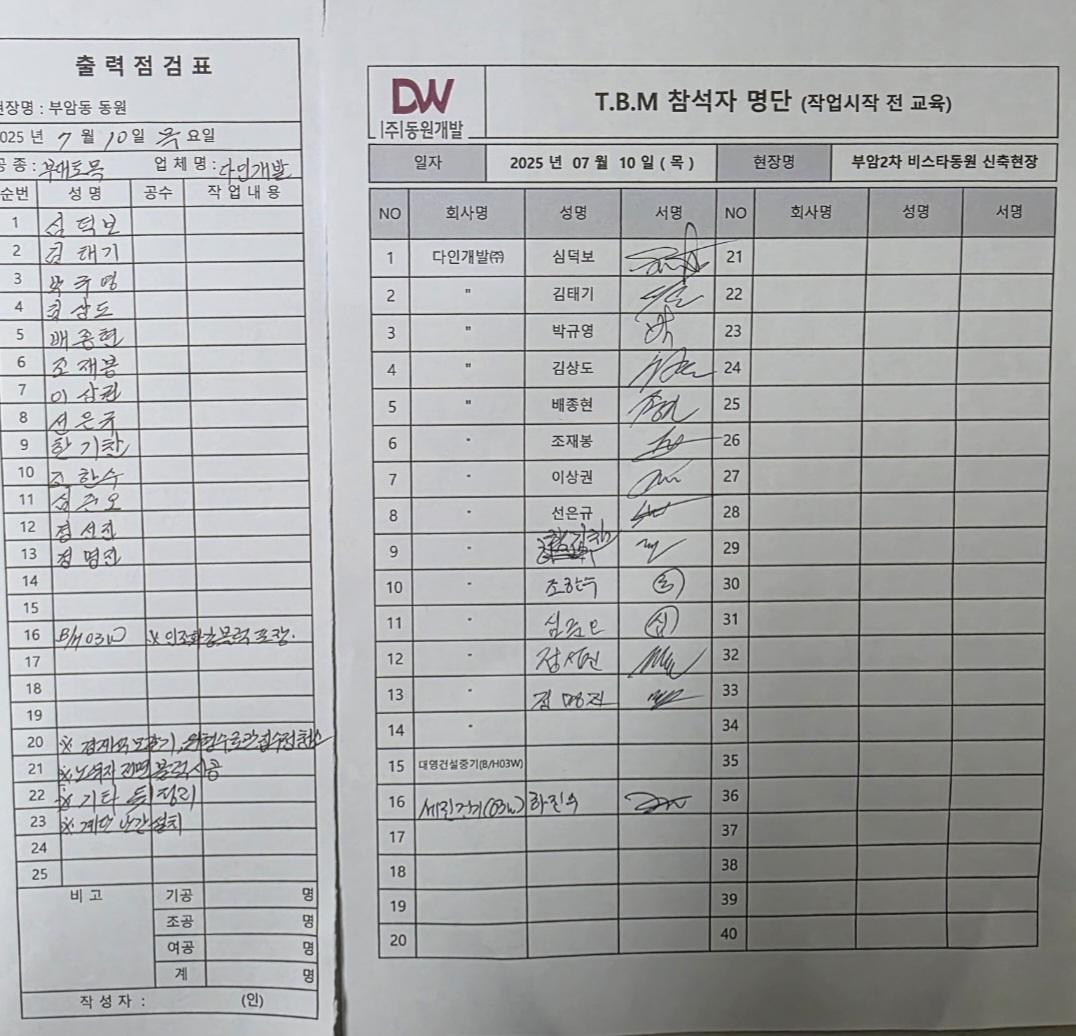 출력점검표
현장명 : 부암동 동원
2025 년 7 월 10 일 목 요일
공종 : 부대토목 업체명 : 다인개발
순번 성명 공수 작업내용
1 심덕보
2 김태기
3 박규영
4 김상도
5 배종현
6 조재봉
7 이상권
8 선은규
9 한기찬
10 조한수
11
12 정서진
13 정명진
14
15
16 B/H 03W ※ 인조화강블럭 포장.
17
18
19
20 ※
21 ※ 노유자 전면 블럭시공
22 ※ 기타 정리
23 ※ 계단 난간 설치
24
25
비고 기공 명
조공 명
여공 명
계 명
작성자 : (인)
DW
(주)동원개발
T.B.M 참석자 명단 (작업시작 전 교육)
일자 2025 년 07 월 10 일 ( 목 ) 현장명 부암2차 비스타동원 신축현장
NO 회사명 성명 서명 NO 회사명 성명 서명
1 다인개발㈜ 심덕보 21
2 " 김태기 22
3 " 박규영 박 23
4 " 김상도 24
5 " 배종현 25
6 " 조재봉 26
7 " 이상권 27
8 " 선은규 28
9 " 한기찬 29
10 " 조한수 조 30
11 " 심 31
12 " 정서진 32
13 " 정명진 33
14 " 34
15 대영건설중기(B/H03W) 35
16 세진건기(03W) 하진수 36
17 37
18 38
19 39
20 40